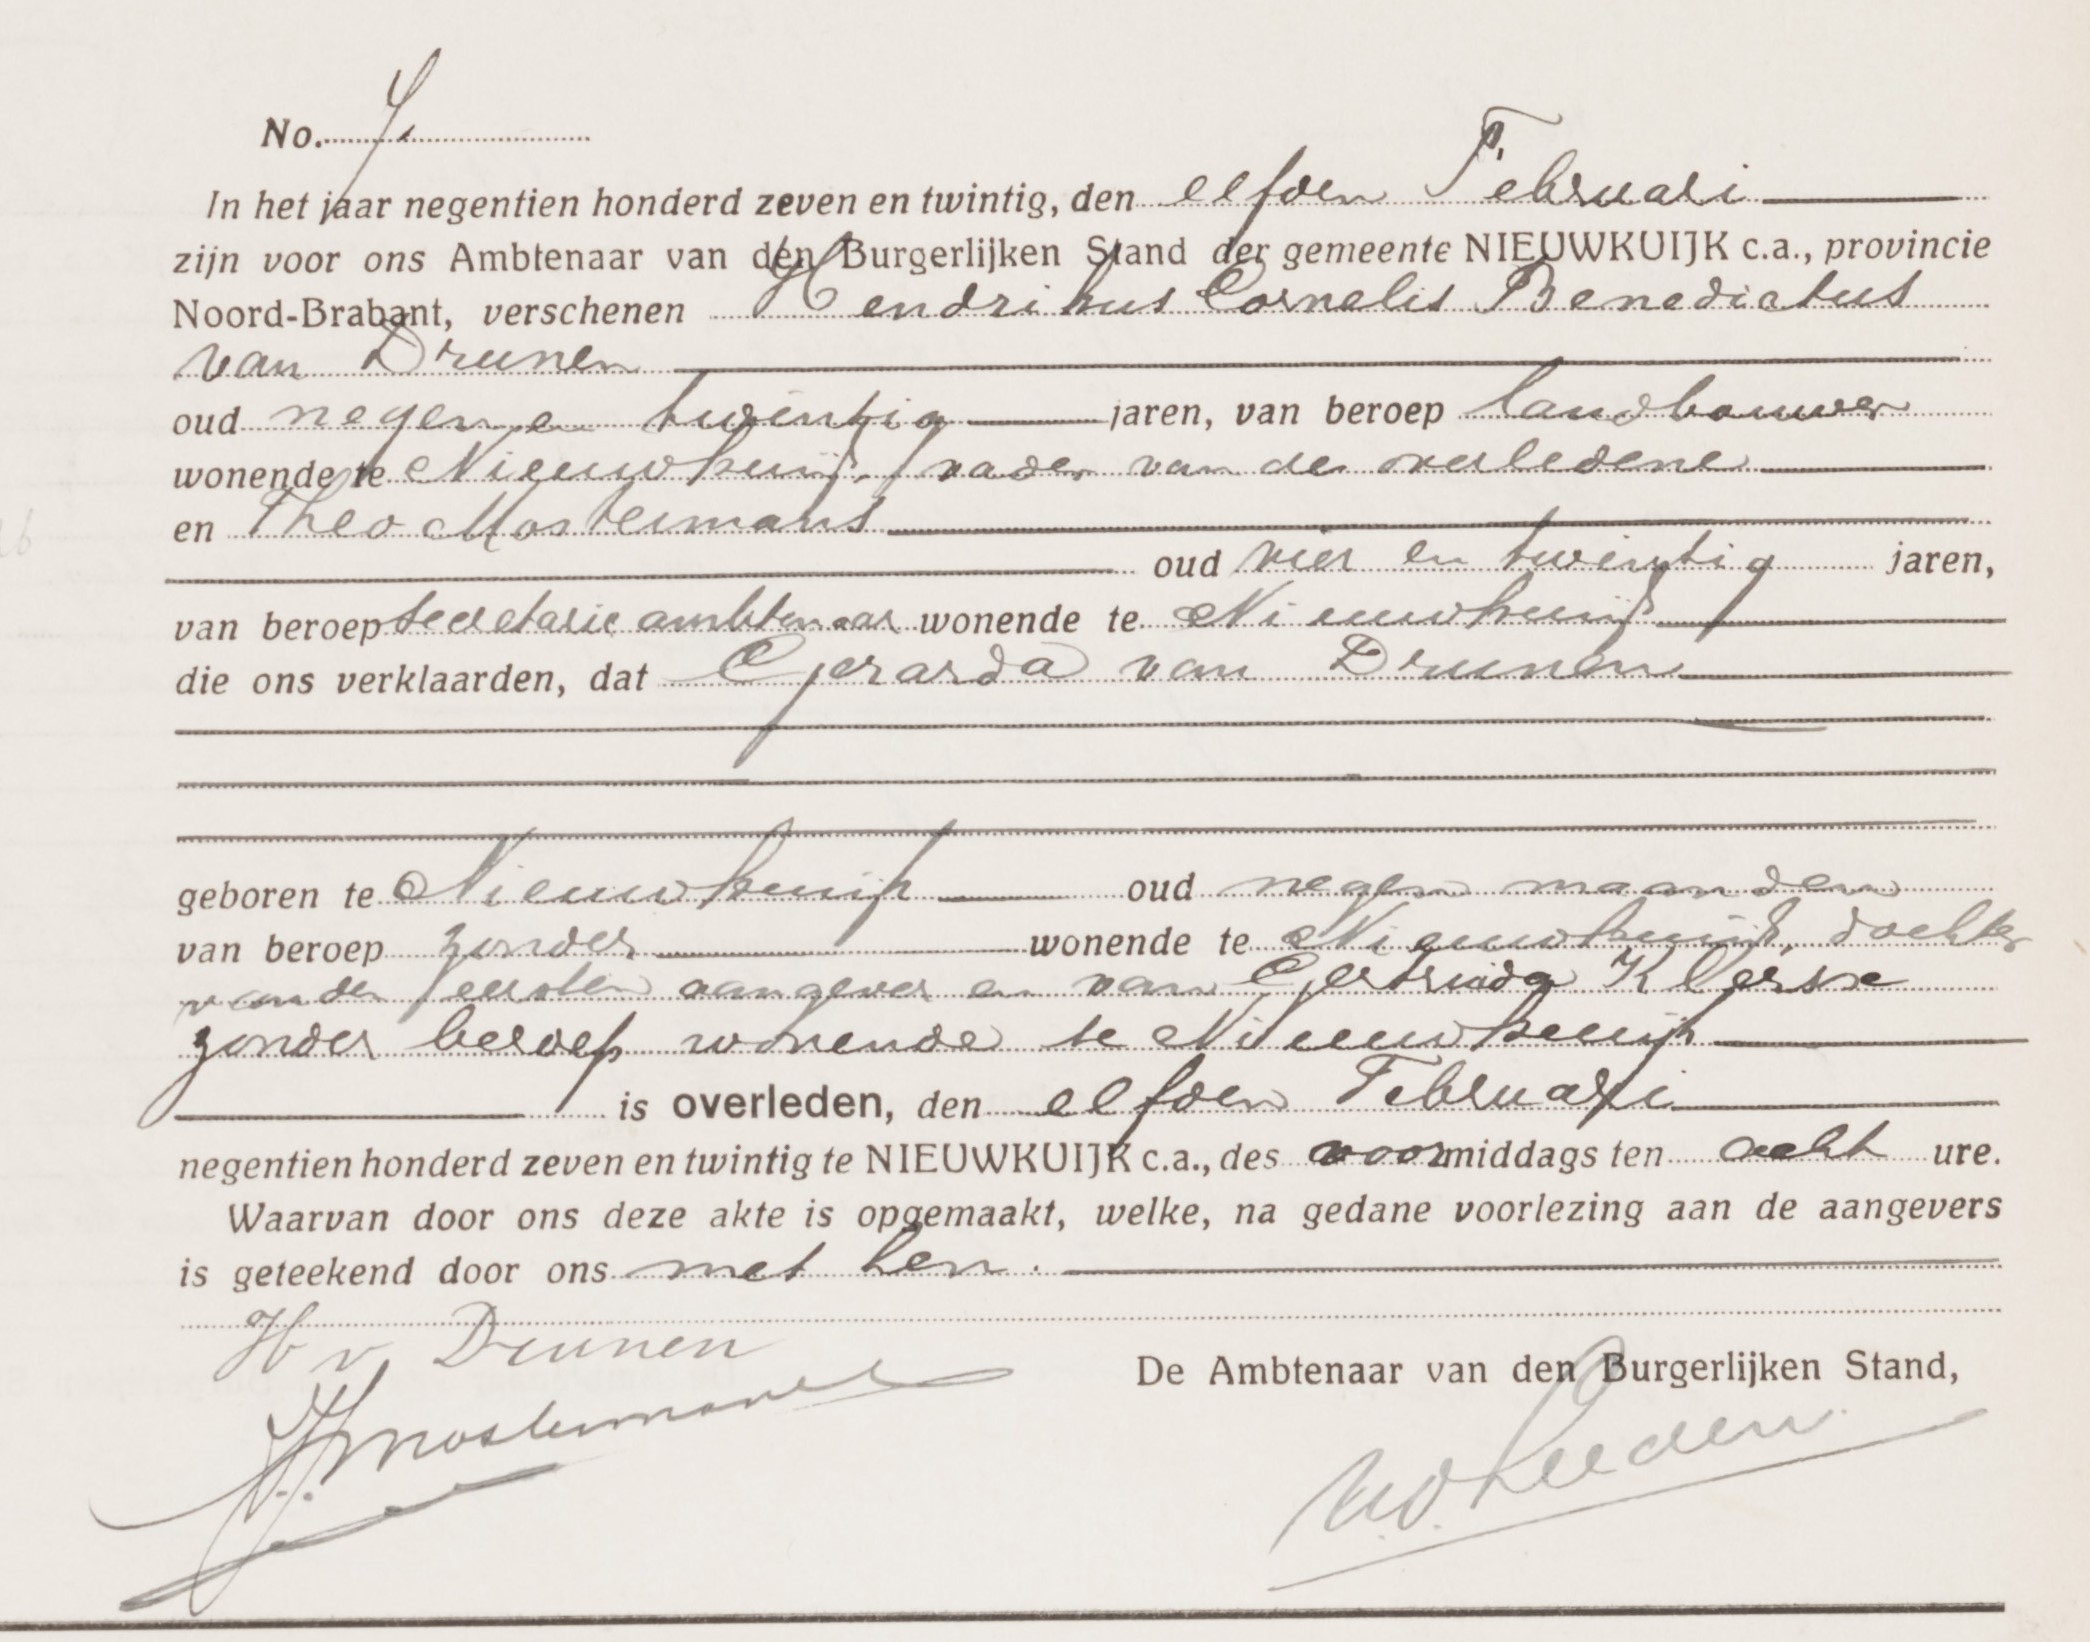 No. 4
In het jaar negentien honderd zeven en twintig, den elfden Februari
zijn voor ons Ambtenaar van den Burgerlijken Stand der gemeente NIEUWKUIJK c.a., provincie
Noord-Brabant, verschenen Hendrikus Cornelis Benedictus
van Drunen
oud negen en twintig jaren, van beroep landbouwer
wonende te Nieuwkuijk, vader van de overledene
en Theo Mostermans
oud vier en twintig jaren,
van beroep secretarie ambtenaar wonende te Nieuwkuijk
die ons verklaarden, dat Gerarda van Drunen
geboren te Nieuwkuijk oud negen maanden
van beroep zonder wonende te Nieuwkuijk, dochter
van den eersten aangever en van Gertruda Klerkx
zonder beroep wonende te Nieuwkuijk
is overleden, den elfden Februari
negentien honderd zeven en twintig te NIEUWKUIJK c.a., des voormiddags ten acht ure.
Waarvan door ons deze akte is opgemaakt, welke, na gedane voorlezing aan de aangevers
is geteekend door ons met hen.
H v Drunen
De Ambtenaar van den Burgerlijken Stand,
Mostermans